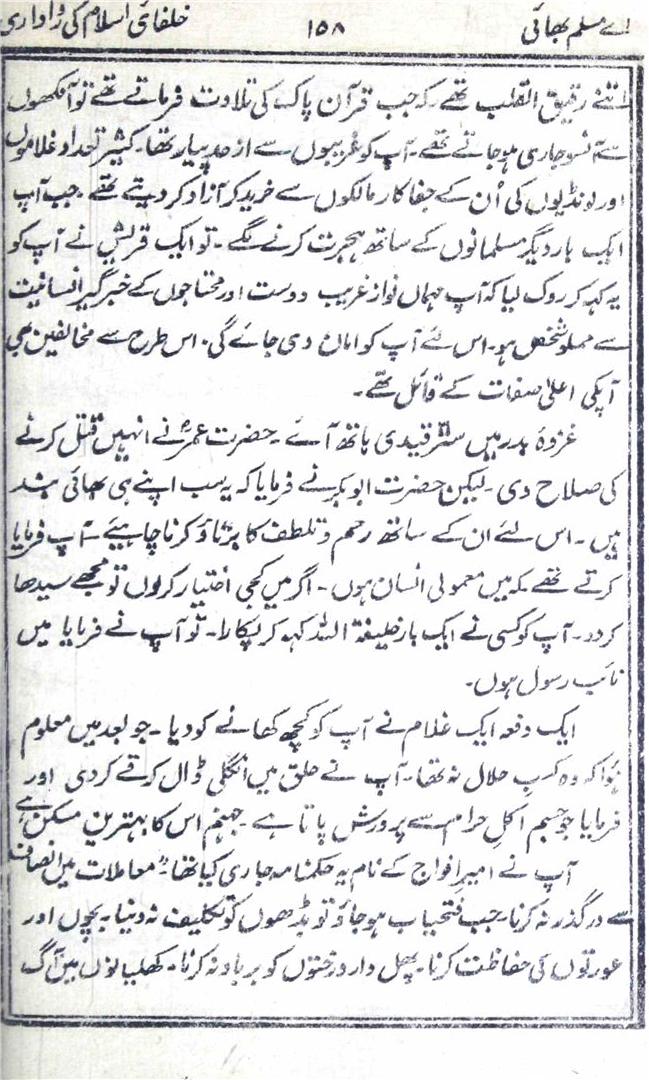 اے مسلم بھائی ۱۵۸ خلفائ اسلام کی رواداری
اتنے رقیق القلب تھے کہ جب قرآن پاک کی تلاوت فرماتے تھے تو آنکھوں
سے آنسو جاری ہو جاتے تھے۔ آپ کو غریبوں سے از حد پیار تھا۔ کثیر تعداد غلاموں
اور لونڈیوں کی اُن کے جفا کار مالکوں سے خرید کر آزاد کر دیتے تھے۔ جب آپ
ایک بار دیگر مسلمانوں کے ساتھ ہجرت کرنے لگے۔ تو ایک قریشی نے آپ کو
یہ کہہ کر روک لیا کہ آپ مہماں نواز غریب دوست اور محتاجوں کے خبر گیر انسانیت
سے مملو شخص ہو۔ اس لئے آپ کو امان دی جائے گی۔ اس طرح سے مخالفین بھی
آپکی اعلیٰ صفات کے قائل تھے۔
غزوۂ بدر میں ستّر قیدی ہاتھ آئے۔ حضرت عمرؓ نے انہیں قتل کرنے
کی صلاح دی۔ لیکن حضرت ابوبکر نے فرمایا کہ یہ سب اپنے ہی بھائی بند
ہیں۔ اس لئے ان کے ساتھ رحم و تلطف کا برتاؤ کرنا چاہیئے۔ آپ فرمایا
کرتے تھے کہ میں معمولی انسان ہوں۔ اگر میں کجی اختیار کروں تو مجھے سیدھا
کر دو۔ آپ کو کسی نے ایک بار خلیفۃ اللہ کہہ کر پکارا۔ تو آپ نے فرمایا میں
نائب رسول ہوں۔
ایک دفعہ ایک غلام نے آپ کو کچھ کھانے کو دیا۔ جو بعد میں معلوم
ہوا کہ وہ کسب حلال نہ تھا۔ آپ نے حلق میں انگلی ڈال کرتے کردی اور
فرمایا جو جسم اکل حرام سے پرورش پاتا ہے۔ جہنم اس کا بہترین مسکن ہے
آپ نے امیر افواج کے نام یہ حکمنامہ جاری کیا تھا "معاملات میں انصاف
سے درگذر نہ کرنا۔ جب فتحیاب ہو جاؤ تو بڈھوں کو تکلیف نہ دینا۔ بچوں اور
عورتوں کی حفاظت کرنا۔ پھل دار درختوں کو برباد نہ کرنا۔ کھلیانوں میں آگ